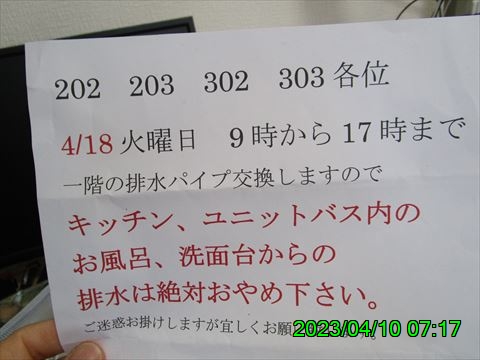 202 203 302 303 各位
4/18 火曜日 9時から17時まで
一階の排水パイプ交換しますので
キッチン、ユニットバス内の
お風呂、洗面台からの
排水は絶対おやめ下さい。
ご迷惑お掛けしますが宜しくお願
2023/04/10 07:17